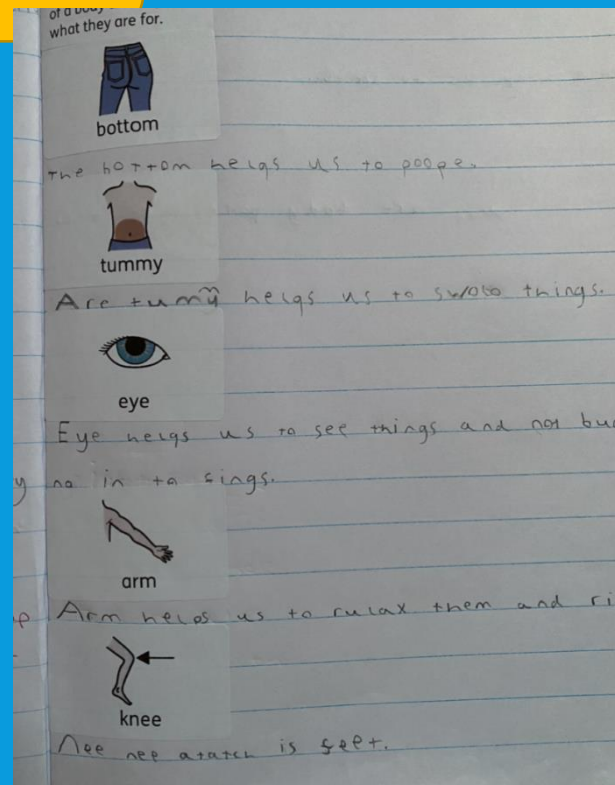 of a body
what they are for.
bottom
The bottom helqs us to poope.
tummy
Are tumy helqs us to swolo things.
eye
Eye helqs us to see things and not bu
y no in to sings.
arm
p Arm helps us to rulax them and ri
knee
Nee nee atatch is feet.